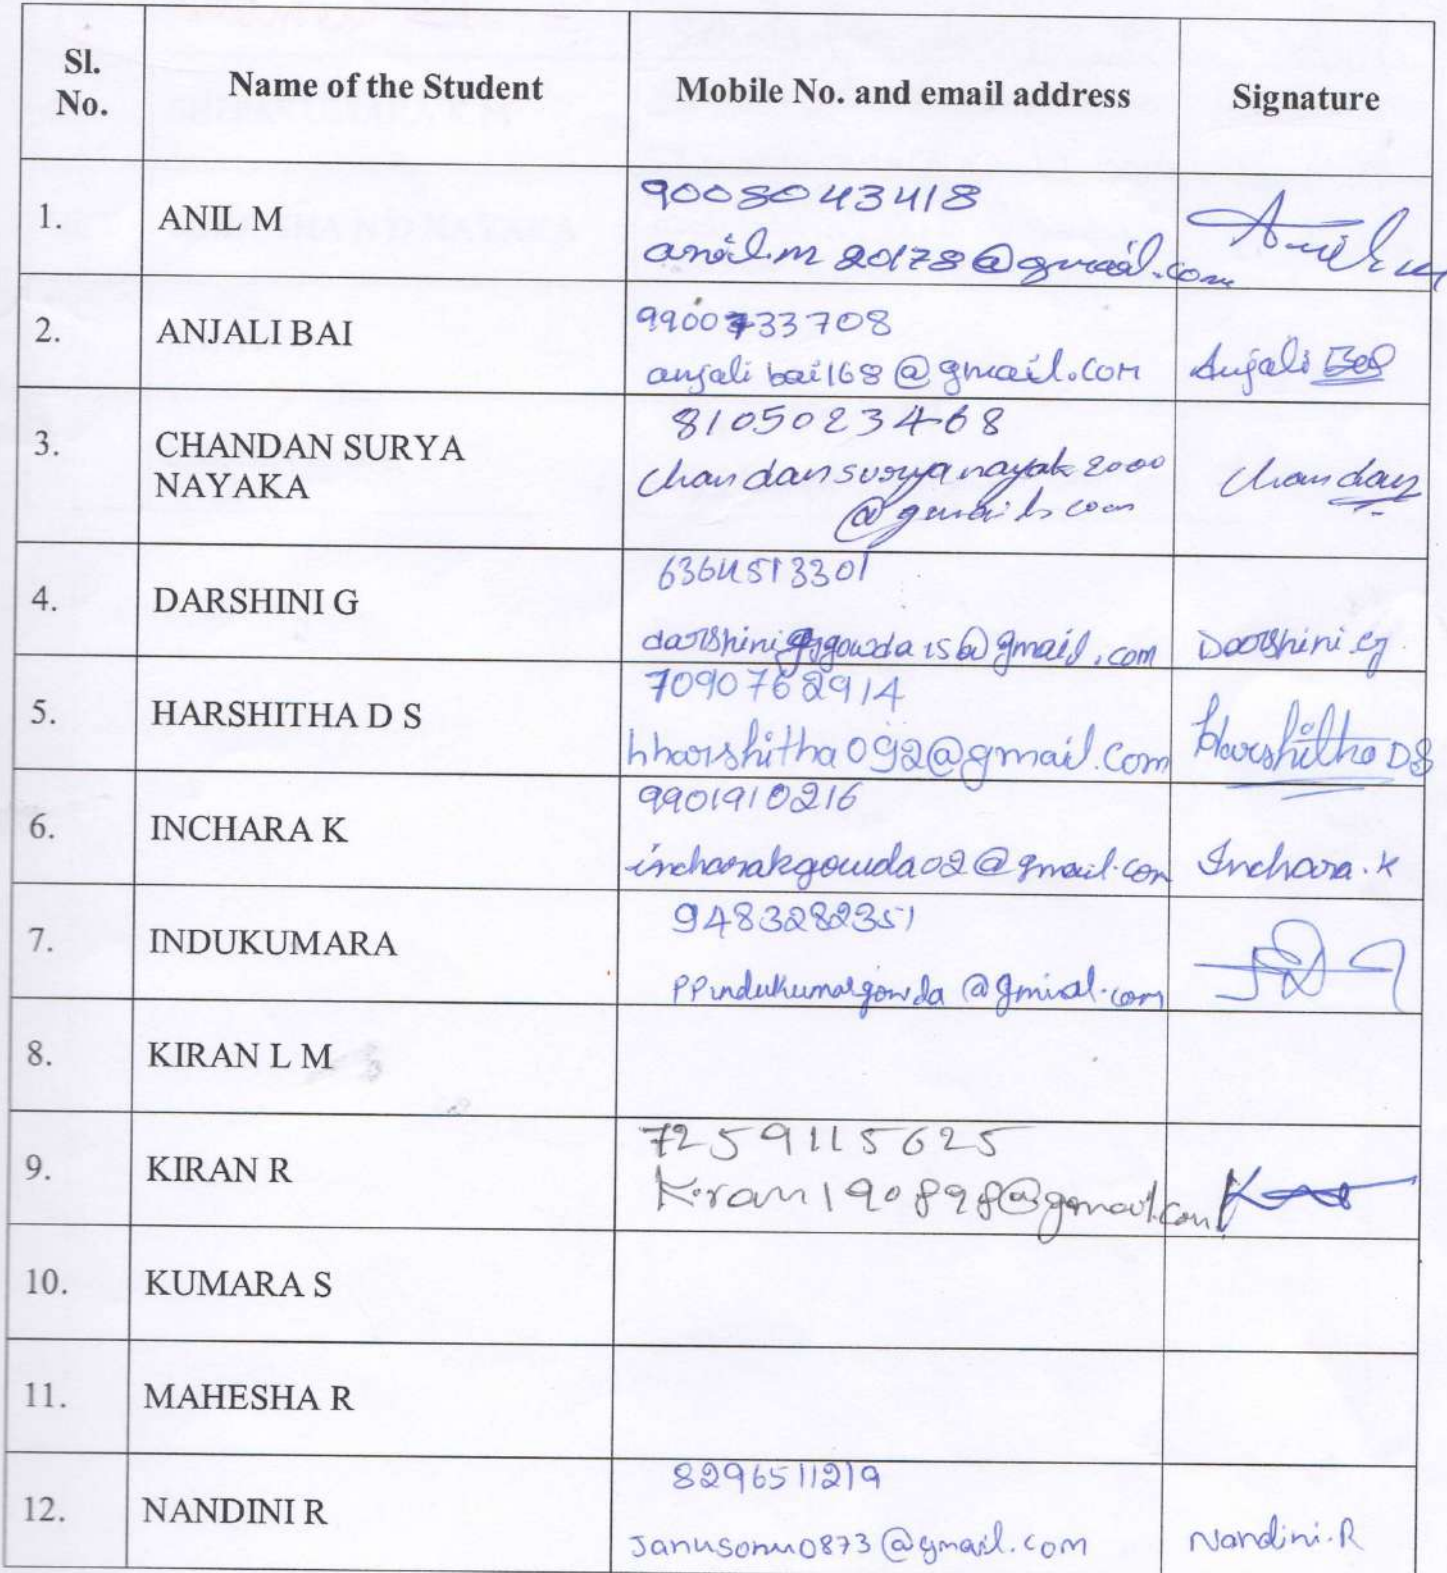 Sl. No.
Name of the Student
Mobile No. and email address
Signature
1.
ANIL M
9008043418
anil.m20178@gmail.com
Anil m
2.
ANJALI BAI
9900733708
anjalibai168@gmail.com
Anjali Bai
3.
CHANDAN SURYA
NAYAKA
8105023468
chandansuryanayak2000
@gmail.com
Chandan
4.
DARSHINI G
6364513301
@gmail.com
Darshini G
5.
HARSHITHA D S
7090762914
hharshitha092@gmail.com
Harshitha DS
6.
INCHARA K
9901910216
incharakgowda02@gmail.com
Inchara.K
7.
INDUKUMARA
9483282351
PPindukumargowda@gmial.com
8.
KIRAN L M
9.
KIRAN R
7259115625
Kiran190898@gmail.com
10.
KUMARA S
11.
MAHESHA R
12.
NANDINI R
8296511219
Janusonu0873@gmail.com
Nandini.R